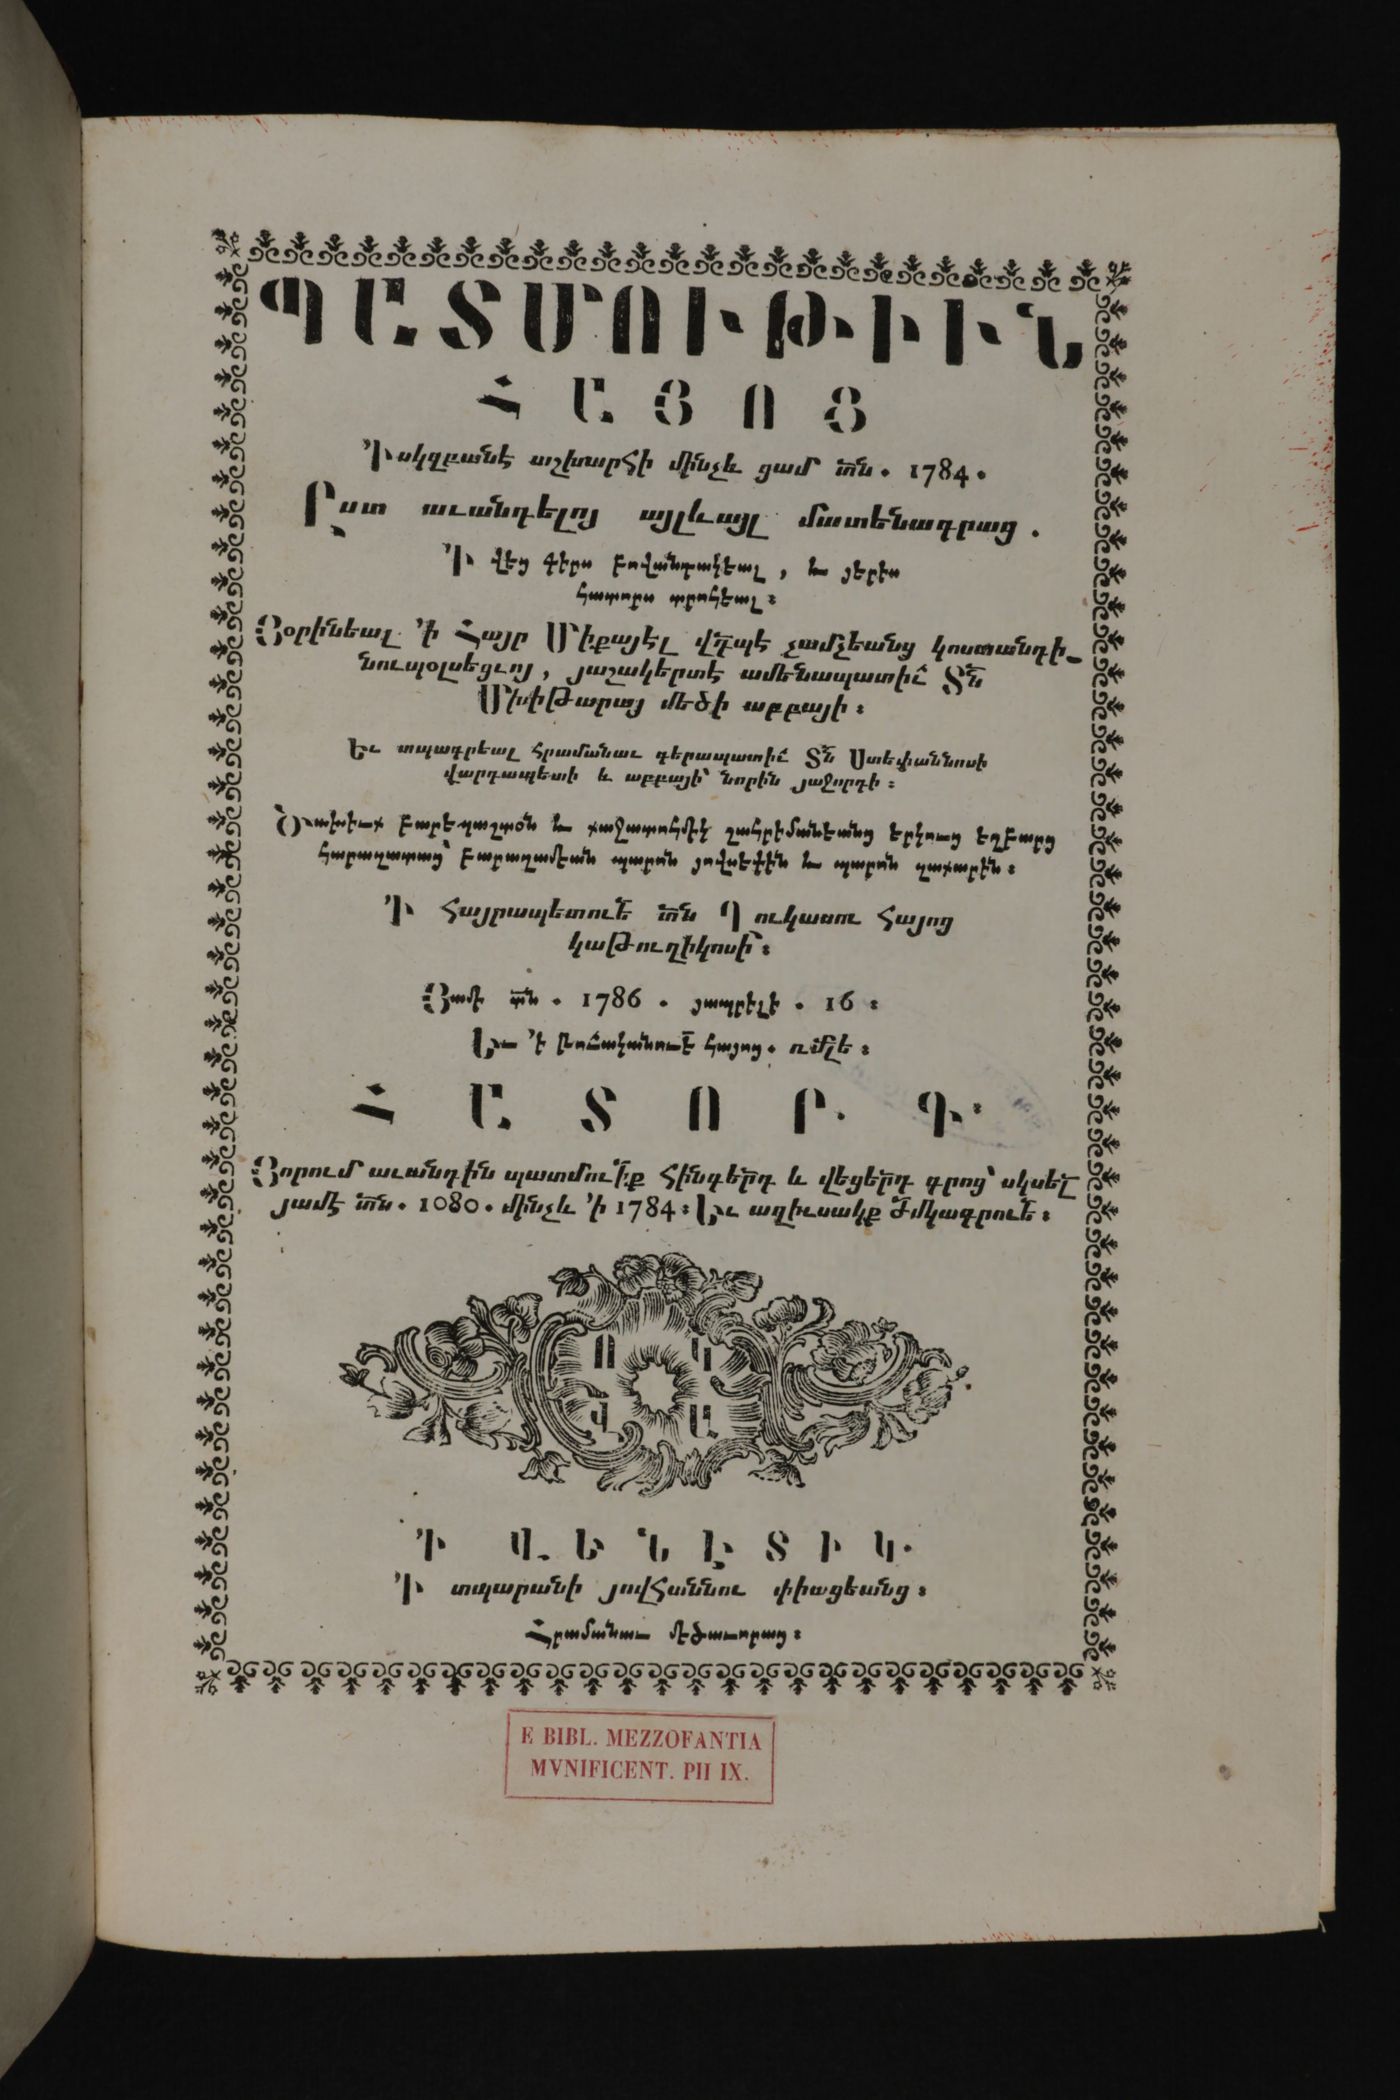 ՊԱՏՄՈՒԹԻԻՆ
ՀԱՅՈՑ
՚Ի սկզբանէ աշխարհի մինչև ցամ տն. 1784.
Ըստ աւանդելոյ այլևայլ մատենագրաց.
՚Ի վեց գիրս բովանդակեալ, և յերիս
հատորս տրոհեալ:
Յօրինեալ ՚ի Հայր Միքայէլ վդպէ չամչեանց կոստանդի-
նուպօլսեցւոյ, յաշակերտէ ամենապատիւ Տն
Մխիթարայ մեծի աբբայի:
Եւ տպագրեալ հրամանաւ գերապատիւ Տն Ստեփաննոսի
վարդապետի և աբբայի՝ նորին յաջորդի:
Ծախիւք բարեպաշտօն և քաջատոհմիկ շահրիմանեանց երկուց եղբարց
հարազատաց՝ բարաղամեան պարոն յովսեփին և պարոն զաքարին:
՚Ի Հայրապետուե տն Ղուկասու Հայոց
կաթուղիկոսի:
Յամի տն. 1786. յապրիլի. 16:
Եւ ՚ի թուականուե հայոց. ռմլե:
ՀԱՏՈՐ. Գ:
Յորում աւանդին պատմուիք հինգերդ և վեցերդ գրոց՝ սկսել
յամէ տն. 1080. մինչև ՚ի 1784: Եւ աղիւսակք ժմկագրուե:
Ո Կ
Վ Ա
՚Ի ՎԵՆԷՏԻԿ.
՚Ի տպարանի յովհաննու փիացեանց:
Հրամանաւ մեծաւորաց:
E BIBL. MEZZOFANTIA
MVNIFICENT. PII IX.